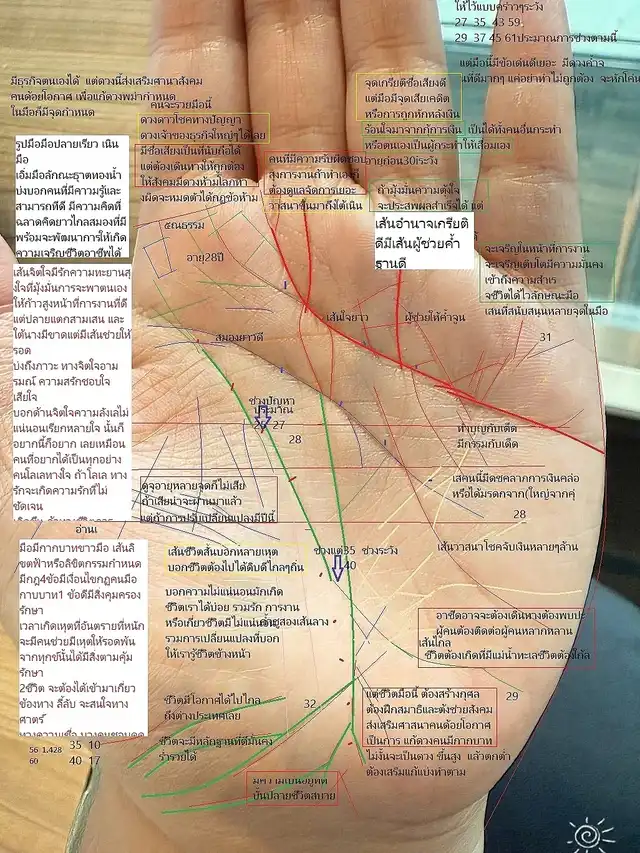 ให้ไว้แบบคร่าวๆระวัง
27 35 43 59
29 37 45 61ประมาณการช่วงตามนี้
แต่มือนี้มีข้อเด่นดีเยอะ มีดวงค้าจ
แค่อย่าทำไม่ถูกต้อง จะหักโค่น
มีธุรกิจตนเองได้ แต่ดวงนี้ส่งเสริมศานาสังคม
คนด้อยโอกาศ เพื่อแก้ดวงพม่ากำหนด
ในมือก็มีจุดกำหนด
คนจะรวยมือนี้
ดวงดาวโชคทางปัญญา
ดวงเจ้าของธุรกิจใหญ่ๆได้เลย
มีชื่อเสียงเป็นที่นับถือได้
แต่ต้องเดินทางให้ถูกต้อง
ให้สังคมมีดวงห้ามโลภทำ
ผิดจะหมดตัวได้กฎข้อห้าม
จุดเกรียติชื่อเสียงดี
แต่มือมีจุดเสียเคดิต
หรือการถูกหักหลังเงิน
ร้อนใจมาจากกู้การเงิน เป็นได้ทั้งคนอื่นกระทำ
หรือตนเองเป็นผู้กระทำให้เสื่อมเอง
อายุก่อน30เระวัง
คนที่มีความรับผิดชอบ
สูงการงานถ้าทำเองก็
ต้องดูแลจัดการเยอะ
วาสนาขึ้นมาถึงใต้เนิน
ถ้ามุ่งมั่นความตั้งใจ
จะประสพผลสำเร็จได้ แต่
เส้นอำนาจเกรียติ
ดีมีเส้นผู้ช่วยค้ำ
ฐานดี
รูปมือมือปลายเรียว เนิน
มือ
เอ็มมือลักษณะธาตุทองน้ำ
บ่งบอกคนที่มีความรู้และ
สามารถที่ดี มีความคิดที่
ฉลาดคิดยาวไกลสมองที่มี
พร้อมจะพัฒนาการให้เกิด
ความเจริญชีวิตอาชีพได้
๕ณธรรม
อายุ28ปี
จะเจริญในหน้าที่การงาน
จะเจริญเติบโตมีความมั่นคง
เข้าถึงความสำเร
จชีวิตได้ไวลักษณะมือ
เสนที่สนับสนุนหลายจุดในมือ
เส้นจิตใจมีรักความทะยานสู
งใจที่มุ่งมั่นการจะพาตนเอง
ให้ก้าวสูงหน้าที่การงานที่ดี
แต่ปลายแตกสามเสน และ
ใต้นางมีขาดแต่มีเส้นช่วยให้
รอด
บ่งถึงภาวะ ทางจิตใจอาม
รมณ์ ความสรักชอบใจ
เสียใจ
บอกด้านจิตใจความลังเลไม่
แน่นอนเรียกหลายใจ นั้นก็
อยากนี้ก็อยาก เลยเหมือน
คนที่อยากได้เป็นทุกอย่าง
คนโลเลทางใจ ถ้าโลเล ทาง
รักจะเกิดความรักที่ไม่
ชัดเจน
เส้นใจยาว
ผู้ช่วยให้ค้ำจูน
31
สมองยาวดี
ช่วงปัญหา
ประมาณ
27
28
ทำบุญกับเด็ด
มีกรรมกับเด็ด
ดูจอายุหลายจุดก็ไม่เสีย
ถ้าเสียน่าจะผ่านมาแล้ว
แต่ถ้าการปรับเปลี่ยนแปลงมีปีนี้
เสคนนี้มีดชคลาภการเงินคล่อ
หรือได้มรดกจาก(ใหญ่จากคุ่
28
อ่านเ
เส้นวาสนาโชคจับเงินหลายๆล้าน
มือมีกากบาทขาวมือ เส้นลิ
ขตฟ้าหรือลิขิตกรรมกำหนด
มีกฎ4ข้อมีเงื่อนไขกฏคนมือ
กาบบาท1 ข้อดีมีสิ่งคุมครอง
รักษา
เวลาเกิดเหตุที่อันตรายที่หนัก
จะมีคนช่วยมีเหตุให้รอดพ้น
จากทุกข์นั้นได้มีสิ่งตามคุ้ม
รักษา
2ชีวิต จะต้องได้เข้ามาเกี่ยว
ข้องทาง ลี้ลับ จะสนใจทาง
ศาตร์
เส้นชีวิตสั้นบอกหลายเหตุ
บอกชีวิตต้องไปได้ดิบดีไกลๆถิ่น
ช่วงแต่35 ช่วงระวัง
40
บอกความไม่แน่นอนมักเกิด
ชีวิตเราได้บ่อย รวมรัก การงาน
หรือเกี่ยวชีวิตมีไม่แน่นอน
รวมการเปลี่ยนแปลงที่บอก
ให้เรารู้ชีวิตข้างหน้า
อาชีดอาจจะต้องเดินทางต้องพบปะ
ผู้คนต้องติดต่อผู้คนหลากหลาน
เส้นไกล
ชีวิตต้องเกิดที่มีแม่น้ำทะเลชีวิตต้องไกล
29
32
ชีวิตมีโอกาศได้ไปไกล
ถึงต่างประเทศเลย
ชีวิตจะมีหลักฐานที่ดีมั่นคง
ร่ำรวยได้
แต่ชีวิตมือนี้ ต้องสร้างกุศล
ต้องฝึกสมาธิและต้งช่วยสังคม
ส่งเสริมศาสนาคนด้อยโอกาศ
เป็นการ แก้ดวงคนมีกากบาท
ไม่งั้นจะเป็นดวง ขึ้นสูง แล้วตกต่ำ
ต้องเสริมแก้แบ่งทำตาม
56 1.428 35 10
60 40 17
บั้นปลายชีวิตสบาย